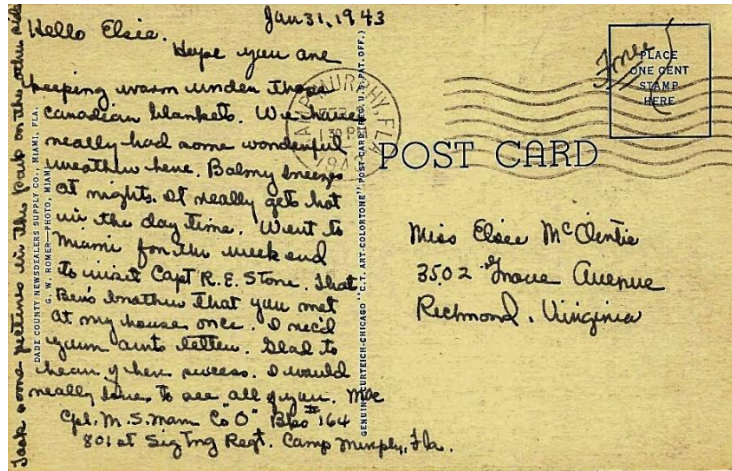 Jan 31, 1943
Hello Elsie.
Hope you are
keeping warm under those
canadian blankets. We have
really had some wonderful
weather here. Balmy breezes
at nights. It really gets hot
in the day time. Went to
Miami for the week end
to visit Capt R. E. Stone. That
Ben's brother that you met
at my house once. I rec'd
your aunts letter. Glad to
hear of her success. I would
really love to see all of you. Mac
Cpl. M. S. Mann Co "O" Bks #164
801st Sig Tng Regt. Camp Murphy, Fla.
Took some pictures in this park on the other side
DADE COUNTY NEWSDEALERS SUPPLY CO., MIAMI, FLA.
G. W. ROMER—PHOTO, MIAMI
GENUINE CURTEICH-CHICAGO "C.T. ART-COLORTONE" POST CARD (REG. U.S. PAT. OFF.)
MURPHY, FLA
1 30 PM
1943
Free
PLACE
ONE CENT
STAMP
HERE
POST CARD
Miss Elsie
3502 Grove Avenue
Richmond, Virginia